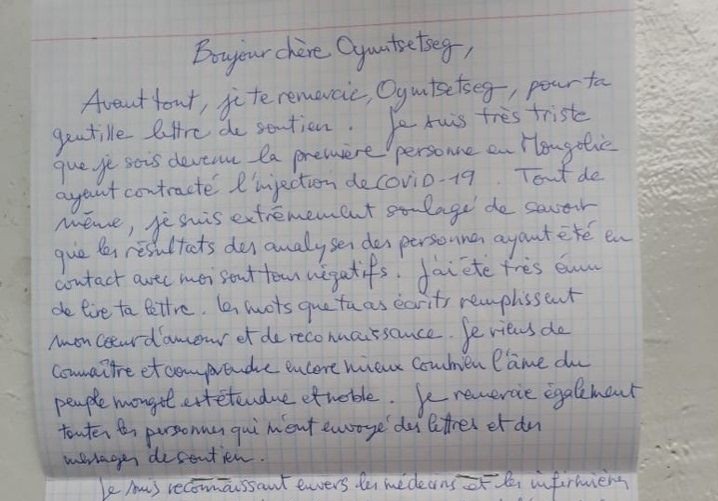 Boujour chère Oyuntsetseg,
Avant tout, je te remercie, Oyuntsetseg, pour ta
gentille lettre de soutien. Je suis très triste
que je sois devenu la première personne en Mongolie
ayant contracté l'injection de COVID-19. Tout de
même, je suis extrêmement soulagé de savoir
que les résultats des analyses des personnes ayant été en
contact avec moi sont tous négatifs. J'ai été très ému
de lire ta lettre. Les mots que tu as écrits remplissent
mon cœur d'amour et de reconnaissance. Je viens de
connaître et comprendre encore mieux combien l'âme du
peuple mongol est étendue et noble. Je remercie également
toutes les personnes qui m'ont envoyé des lettres et des
messages de soutien.
Je suis reconnaissant envers les médecins et les infirmières